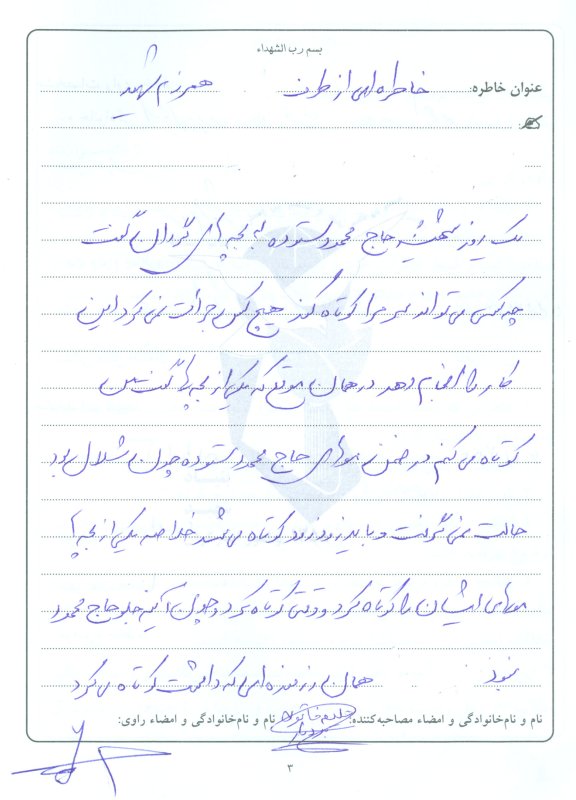 بسم رب الشهداء
عنوان خاطره: خاطره ای از طرف همرزم شهید
یک روز حاج محمود ستوده به بچه های گردان گفت
چه کسی می تواند سر مرا کوتاه کند هیچ کس جرات نمی کرد این
کار را انجام دهد در همان موقع که یکی از بچه ها گفت من
کوتاه می کنم در ضمن موهای حاج محمود ستوده چون شلال بود
حالت نمی گرفت و باید زود زود کوتاه می شد خلاصه یکی از بچه ها
موهای ایشان را کوتاه کرد وقتی کوتاه کرد و چون آینه جلو حاج محمود
نبود همان رزمنده ای که داشت کوتاه می کرد
نام و نام‌خانوادگی و امضاء مصاحبه‌کننده: نام و نام‌خانوادگی و امضاء راوی:
۳